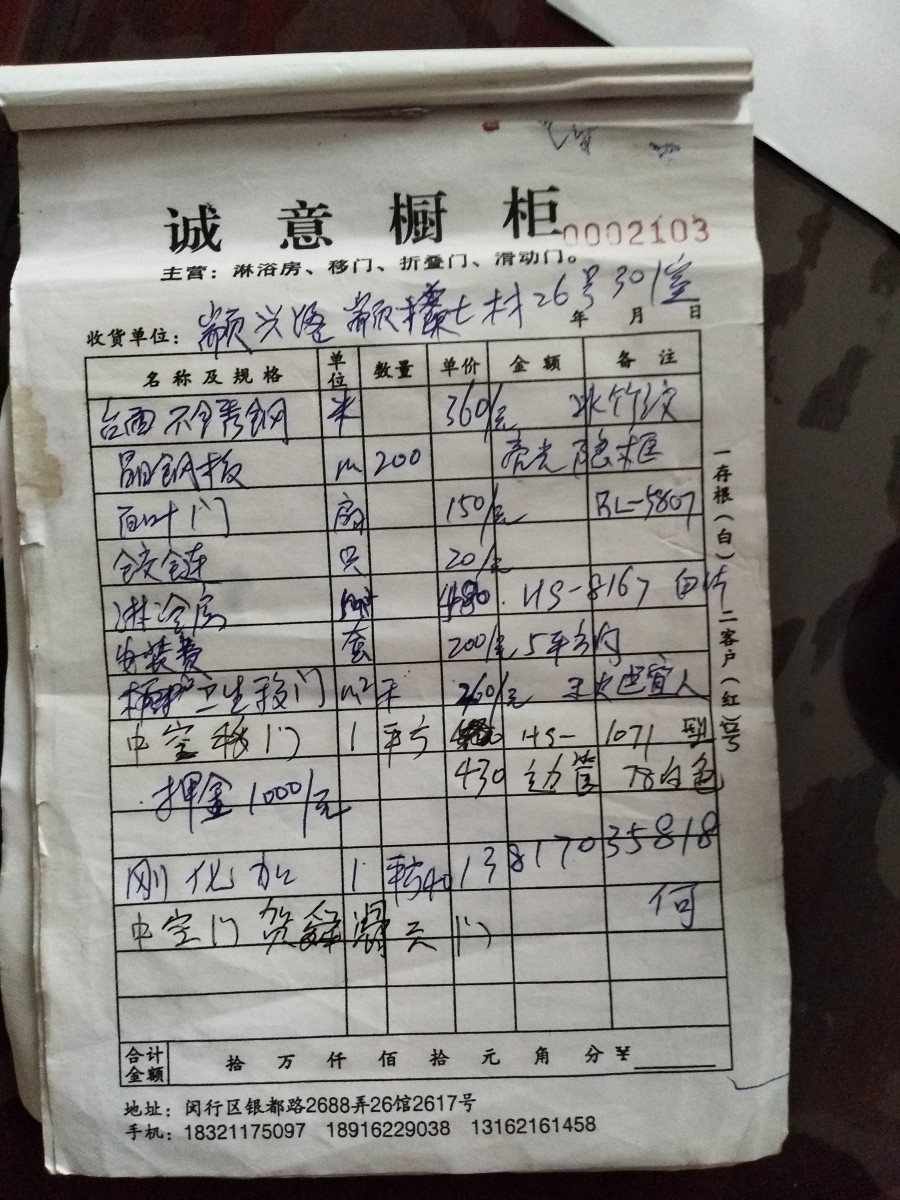 诚意橱柜 0002103
主营：淋浴房、移门、折叠门、滑动门。
收货单位：颛兴 颛 七村26号301室
年 月 日
名称及规格 单位 数量 单价 金额 备注
台面不锈钢 米 360/元 冰竹纹
晶钢板 m 200 亮光隐框
百叶门 扇 150/元 BL-5807
铰链 只 20/元
淋浴房 480. HS-8167
安装费 套 200/元 5平方内
卫生移门 m² 平 260/元
中空移门 1 平方 HS-1071型号
430 78白色
押金1000/元
刚化加 1 平方40 13817035818
中空门 门 何
合计金额 拾 万 仟 佰 拾 元 角 分 ¥
一存根（白）二客户（红）
地址：闵行区银都路2688弄26馆2617号
手机：18321175097 18916229038 13162161458